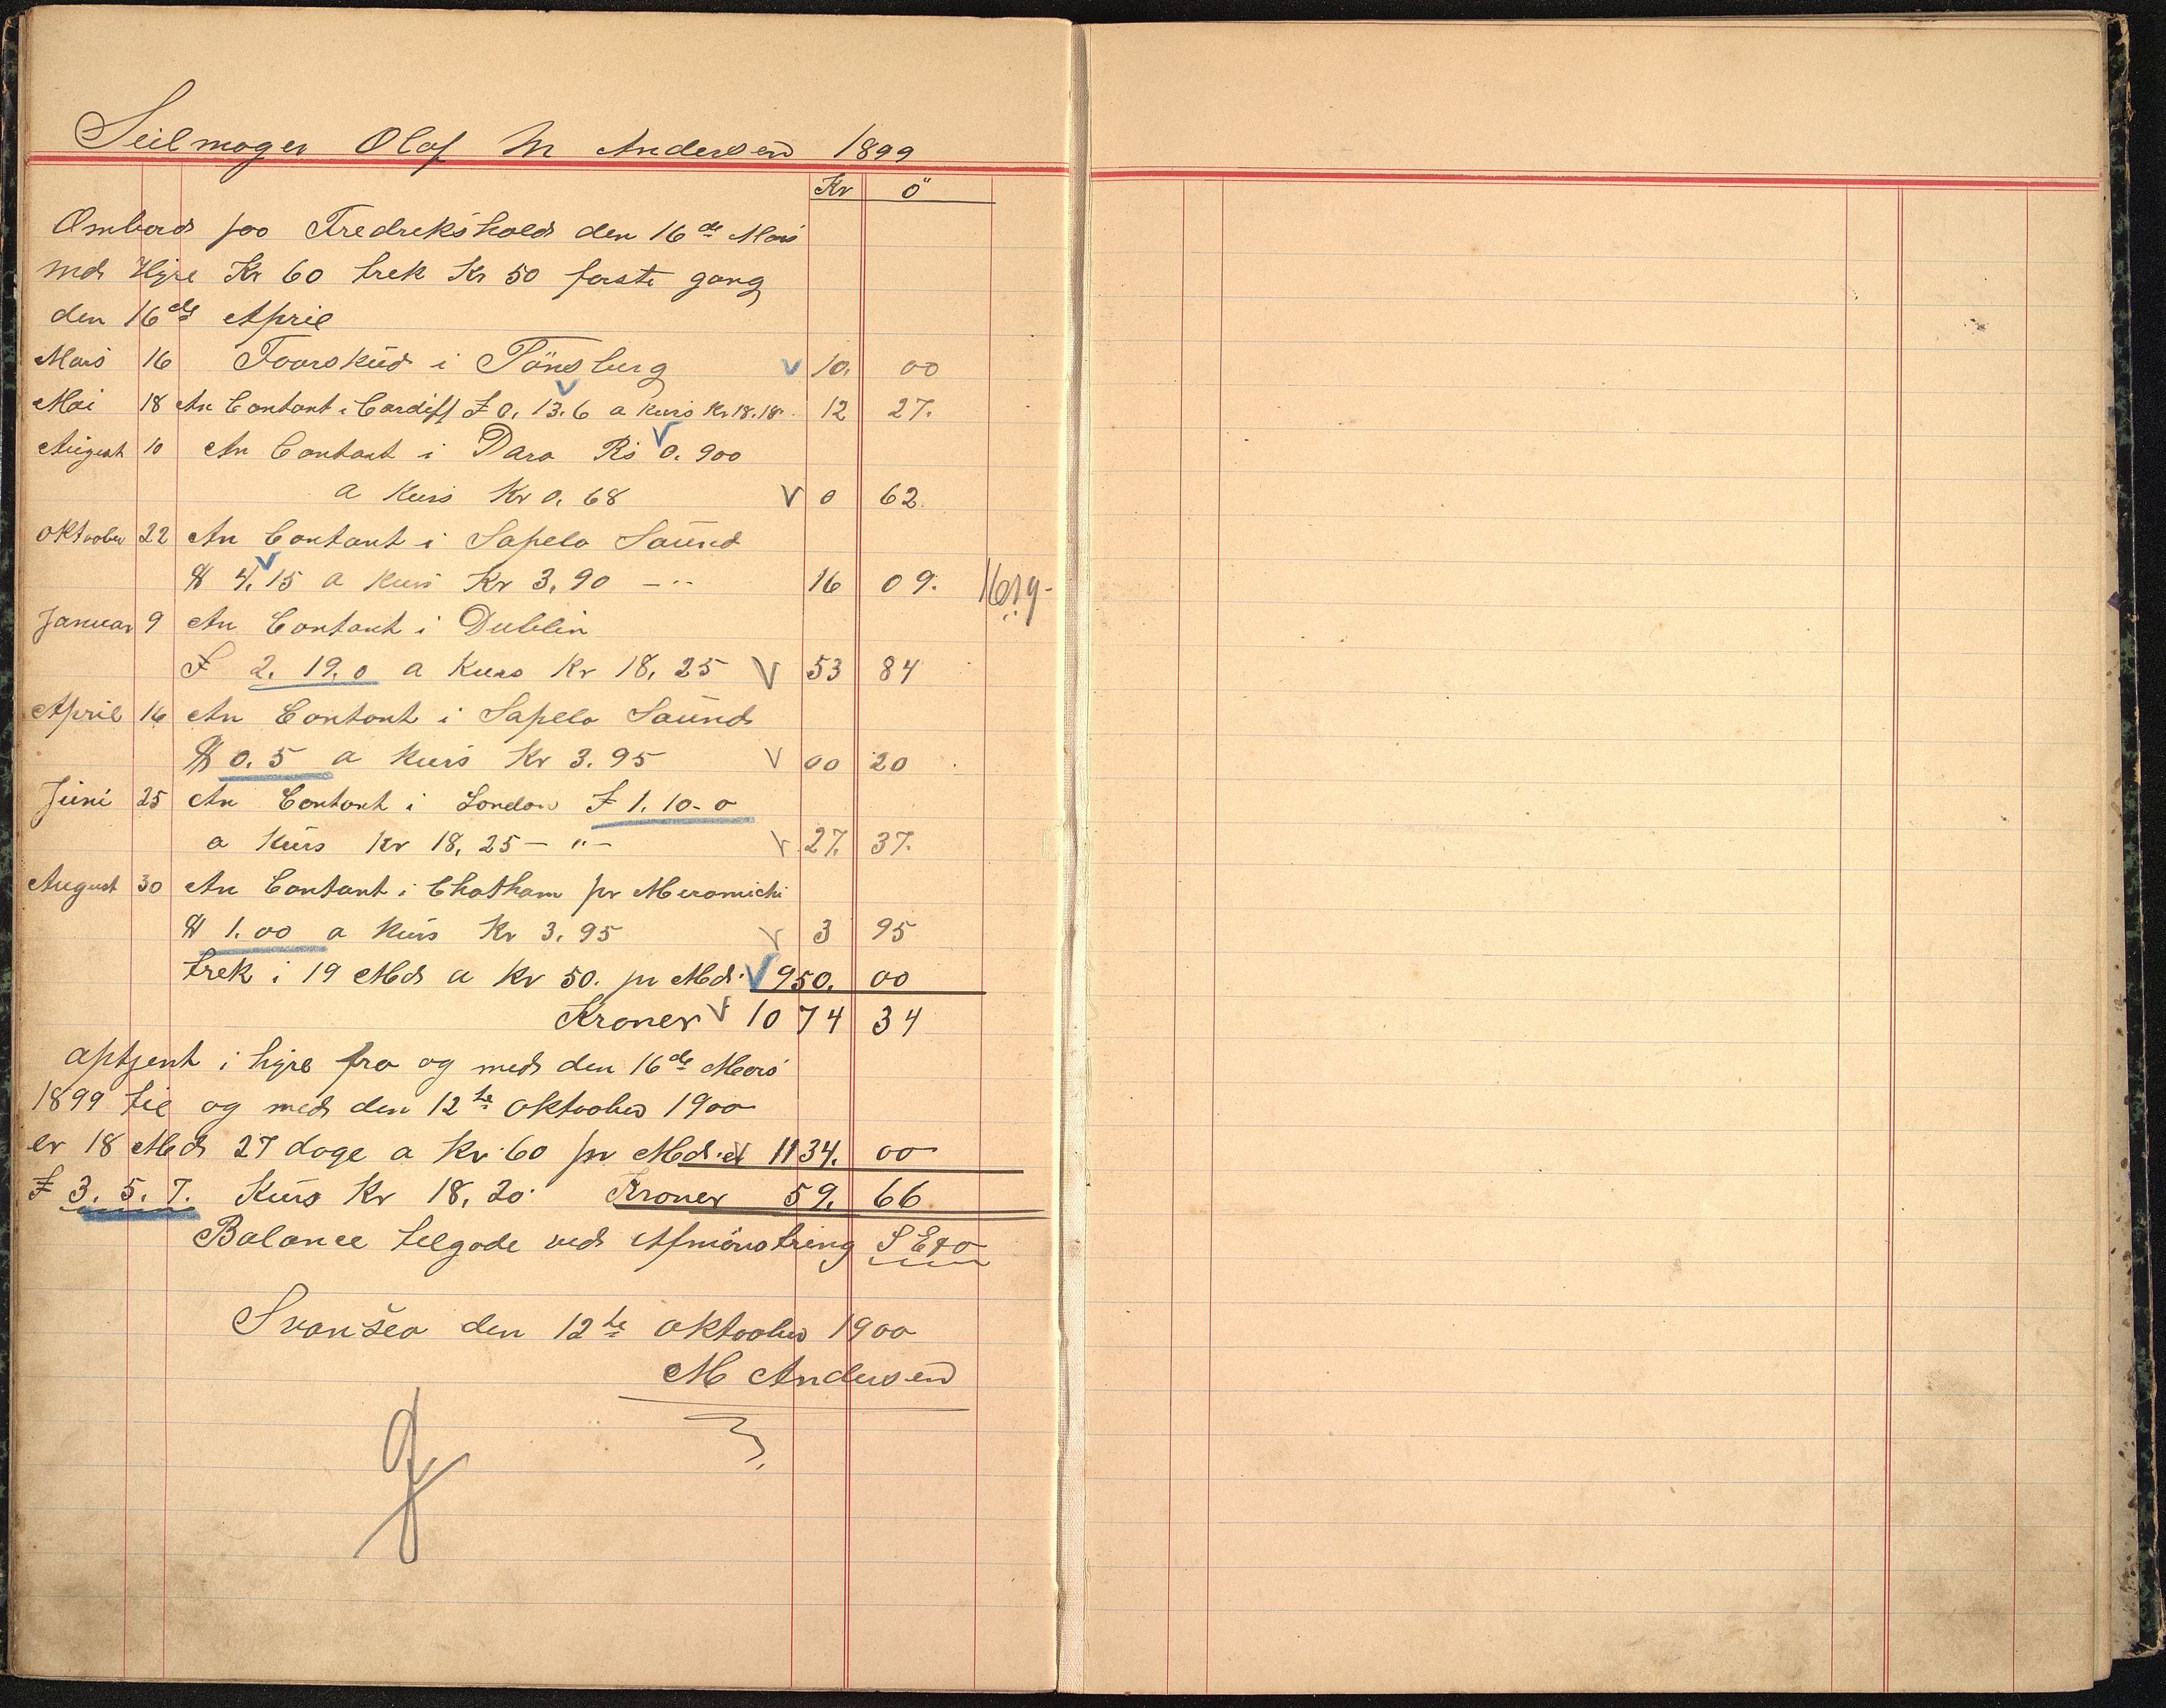 Seilmager Olaf M Andersen 1899
Kr Ö
Ombord paa Fredrekshald den 16de Mars
med Hyre Kr 60 trek Kr 50 første gang
den 16de April
Mars 16 Foorskud i Tönsberg 10. 00
Mai 18 An Contant i Cardiff £ 0. 13. 6 a Kurs Kr 18.18 12 27.
August 10 An Contant i Para Rs 0. 900
a Kurs Kr 0. 68 0 62
Oktoober 22 An Contant i Sapelo Saund
$ 4. 15 a Kurs Kr 3. 90 — " 16 09. 16 19
Januar 9 An Contant i Dublin
£ 2. 19. 0 a Kurs Kr 18, 25 53 84
April 16 An Contant i Sapelo Saund
$ 0. 5 a Kurs Kr 3. 95 00 20
Juni 25 An Contant i London £ 1. 10- 0
a Kurs Kr 18, 25 — " — 27. 37.
August 30 An Contant i Chatham pr Meramichi
$ 1. 00 a Kurs Kr 3. 95 3 95
trek i 19 Mds a Kr 50. pr Md. 950. 00
Kroner 1074 34
optjent i hyre fra og med den 16de Mars
1899 til og med den 12te Oktoober 1900
er 18 Mds 27 dage a Kr 60 pr Md. 1134. 00
£ 3. 5. 7. Kurs Kr 18, 20 Kroner 59. 66
Balance telgode ved Afmönstring S E & O
Svansea den 12te Oktoober 1900
M Andersen